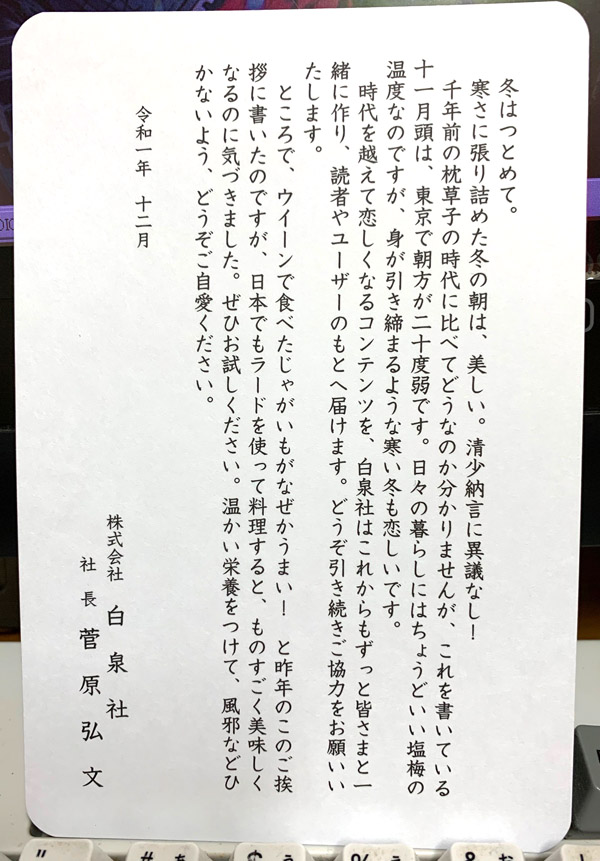 冬はつとめて。
寒さに張り詰めた冬の朝は、美しい。清少納言に異議なし！
千年前の枕草子の時代に比べてどうなのか分かりませんが、これを書いている
十一月頭は、東京で朝方が二十度弱です。日々の暮らしにはちょうどいい塩梅の
温度なのですが、身が引き締まるような寒い冬も恋しいです。
時代を越えて恋しくなるコンテンツを、白泉社はこれからもずっと皆さまと一
緒に作り、読者やユーザーのもとへ届けます。どうぞ引き続きご協力をお願いい
たします。
ところで、ウイーンで食べたじゃがいもがなぜかうまい！　と昨年のこのご挨
拶に書いたのですが、日本でもラードを使って料理すると、ものすごく美味しく
なるのに気づきました。ぜひお試しください。温かい栄養をつけて、風邪などひ
かないよう、どうぞご自愛ください。
令和一年　十二月
株式会社　白泉社
社長　菅原弘文
" # あ $ う % ぇ & お